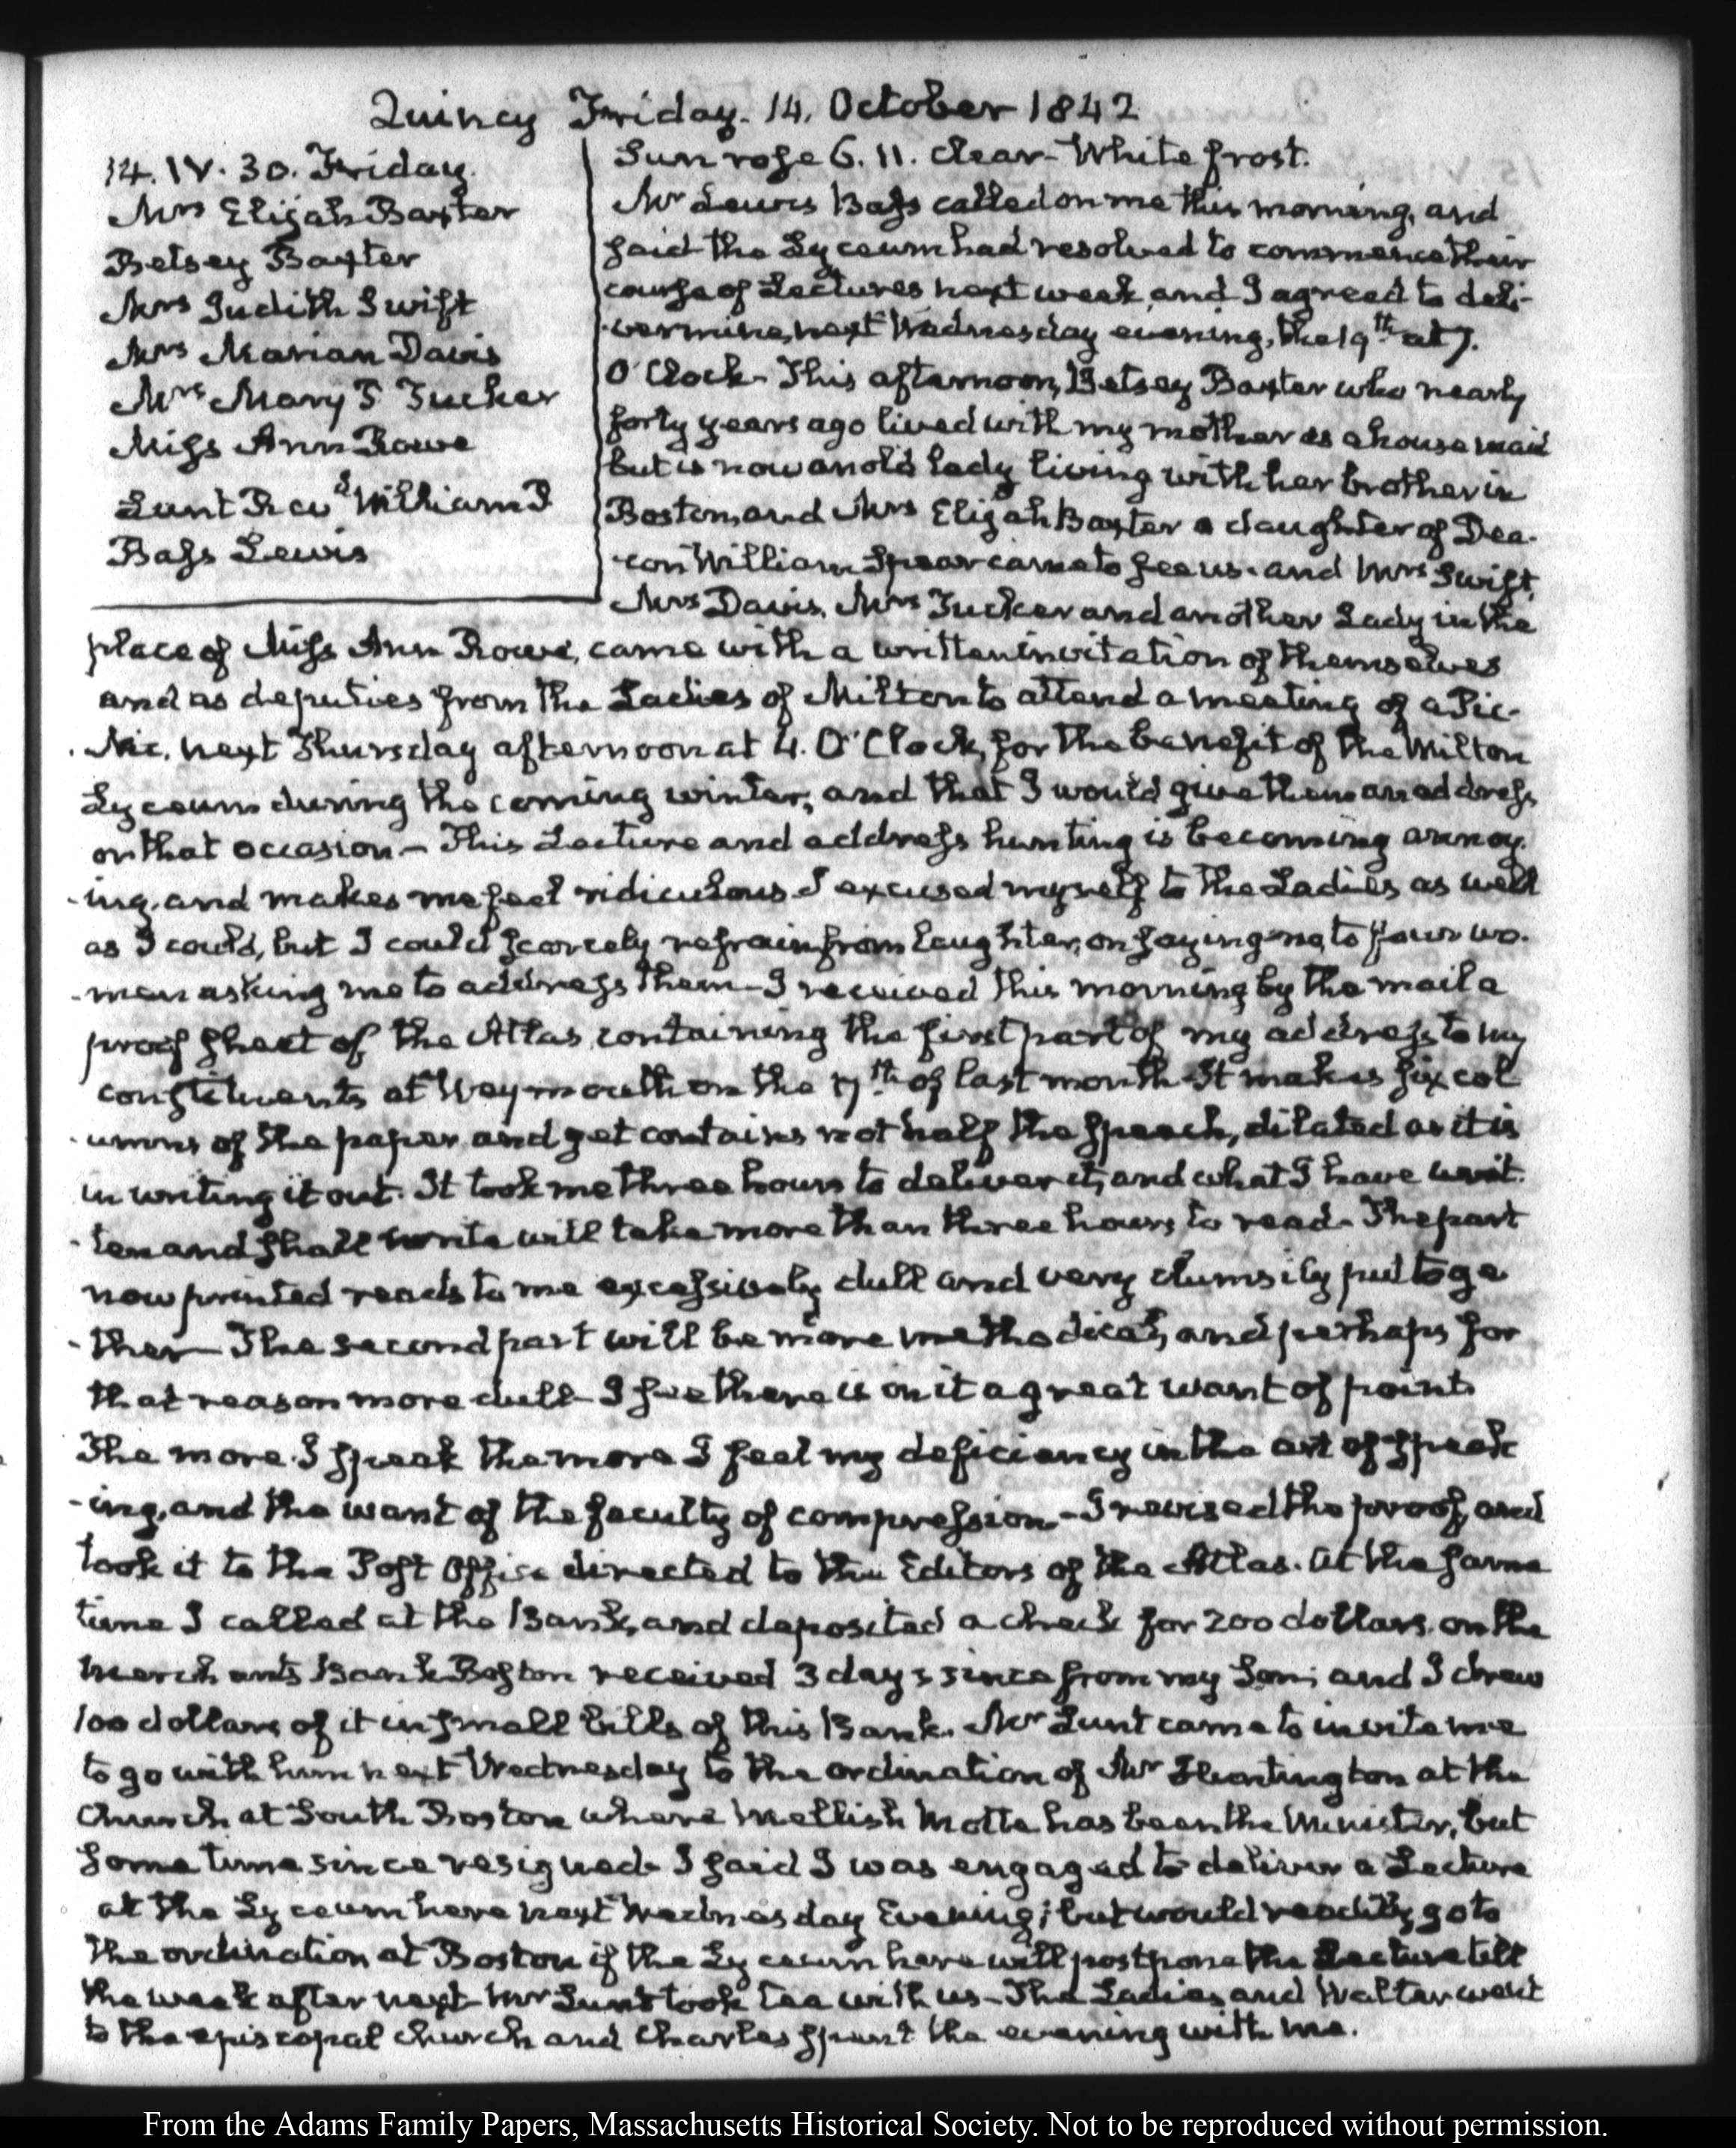 Quincy Friday. 14. October 1842
14. IV. 30. Friday.
Mrs Elijah Baxter
Betsey Baxter
Mrs Judith Swift
Mrs Marian Davis
Mrs Mary T Tucker
Miss Ann Rowe
Lunt Revd William P
Bass Lewis
Sun rose 6. 11. clear- White frost.
Mr Lewis Bass called on me this morning, and
said the Lyceum had resolved to commence their
course of Lectures next week, and I agreed to deli-
-ver mine, next Wednesday evening, the 19th at 7.
O'Clock- This afternoon, Betsey Baxter who nearly
forty years ago lived with my mother as a house maid
but is now an old lady living with her brother in
Boston, and Mrs Elijah Baxter a daughter of Dea-
-con William Spear came to see us- and Mrs Swift,
Mrs Davis, Mrs Tucker and another Lady in the
place of Miss Ann Rowe, came with a written invitation of themselves
and as deputies from the Ladies of Milton to attend a meeting of a Pic-
-Nic, next Thursday afternoon at 4. O'Clock, for the benefit of the Milton
Lyceum during the coming winter, and that I would give them an address
on that occasion- This Lecture and address hunting is becoming annoy-
-ing, and makes me feel ridiculous I excused myself to the Ladies as well
as I could, but I could scarcely refrain from laughter, on saying no, to four wo-
-men asking me to address them- I received this morning by the mail a
proof sheet of the Atlas containing the first part of my address to my
constituents at Weymouth on the 17th of last month- It makes six col
-umns of the paper and yet contains not half the speech, dilated as it is
in writing it out. It took me three hours to deliver it, and what I have writ-
-ten and shall write will take more than three hours to read- The part
now printed reads to me excessively dull and very clumsily put toge
-ther- The second part will be more methodical, and perhaps for
that reason more dull- I see there is in it a great want of point
The more I speak the more I feel my deficiency in the art of speak
-ing, and the want of the faculty of compression- I revised the proof, and
took it to the Post Office directed to the Editors of the Atlas. At the same
time I called at the Bank, and deposited a check for 200 dollars, on the
Merchants Bank Boston received 3 days since from my Son; and I drew
100 dollars of it in small bills of this Bank. Mr Lunt came to invite me
to go with him next Wednesday to the ordination of Mr Huntington at the
Church at South Boston where Mellish Motte has been the Minister, but
some time since resigned- I said I was engaged to deliver a Lecture
at the Lyceum here next Wednesday Evening; but would readily go to
the ordination at Boston if the Lyceum here will postpone the Lecture till
the week after next- Mr Lunt took tea with us- The Ladies and Walter went
to the episcopal church and Charles spent the evening with me.
From the Adams Family Papers, Massachusetts Historical Society. Not to be reproduced without permission.